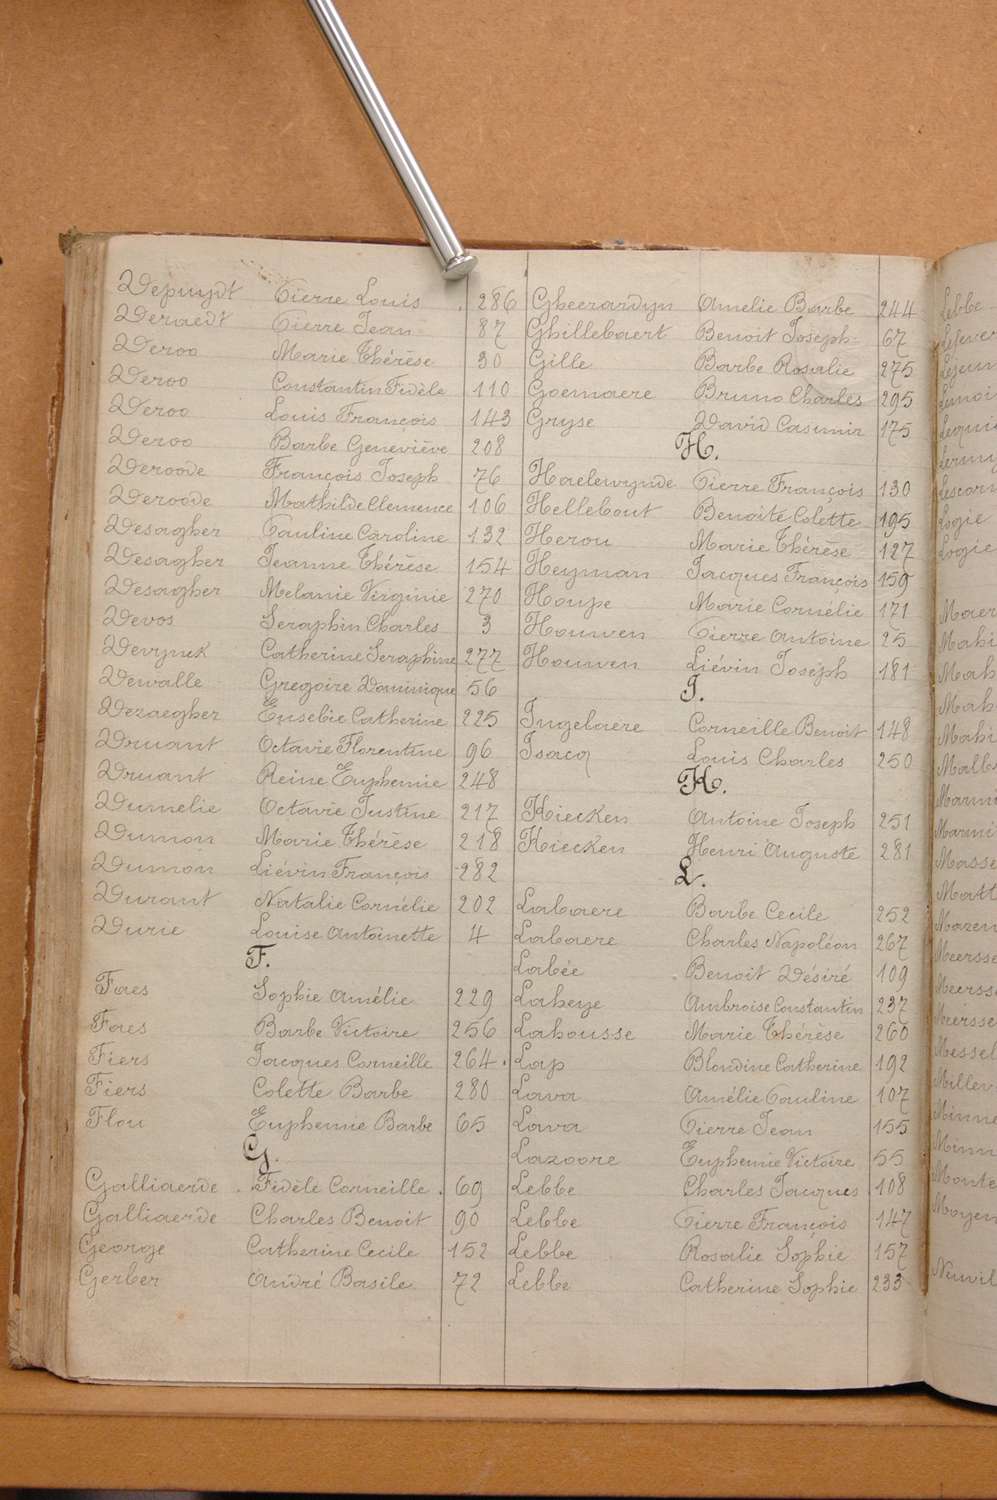 Depuydt Pierre Louis 286
Deraedt Pierre Jean 87
Deroo Marie Thérèse 30
Deroo Constantin Fidèle 110
Deroo Louis François 143
Deroo Barbe Geneviève 208
Deroode François Joseph 76
Deroode Mathilde Clemence 106
Desagher Pauline Caroline 132
Desagher Jeanne Thérèse 154
Desagher Melanie Virginie 270
Devos Seraphin Charles 3
Devynck Catherine Seraphine 277
Dewalle Gregoire Dominique 56
Dezaegher Eusebie Catherine 225
Druant Octavie Florentine 96
Druant Reine Euphemie 248
Dumelie Octavie Justine 217
Dumon Marie Thérèse 218
Dumon Liévin François 282
Durant Natalie Cornélie 202
Durie Louise Antoinette 4
F.
Faes Sophie Amélie 229
Faes Barbe Victoire 256
Fiers Jacques Corneille 264
Fiers Colette Barbe 280
Flou Euphemie Barbe 65
G.
Galliaerde Fidèle Corneille 69
Galliaerde Charles Benoit 90
George Catherine Cecile 152
Gerber André Basile 72
Gheerardyn Amelie Barbe 244
Ghillebaert Benoit Joseph 67
Gille Barbe Rosalie 275
Goemaere Bruno Charles 295
Gryse David Casimir 175
H.
Haelewynde Pierre François 130
Hellebout Benoite Colette 195
Herou Marie Thérèse 127
Heyman Jacques François 159
Houpe Marie Cornélie 171
Houwen Pierre Antoine 25
Houwen Liévin Joseph 181
I.
Ingelaere Corneille Benoit 148
Isacq Louis Charles 250
K.
Kiecken Antoine Joseph 251
Kiecken Henri Auguste 281
L.
Labaere Barbe Cecile 252
Labaere Charles Napoléon 267
Labée Benoit Désiré 109
Laheye Ambroise Constantin 237
Lahousse Marie Thérèse 260
Lap Blondine Catherine 192
Lava Amélie Pauline 107
Lava Pierre Jean 155
Lazoore Euphemie Victoire 55
Lebbe Charles Jacques 108
Lebbe Pierre François 147
Lebbe Rosalie Sophie 157
Lebbe Catherine Sophie 233
Lebbe
Logie
Logie